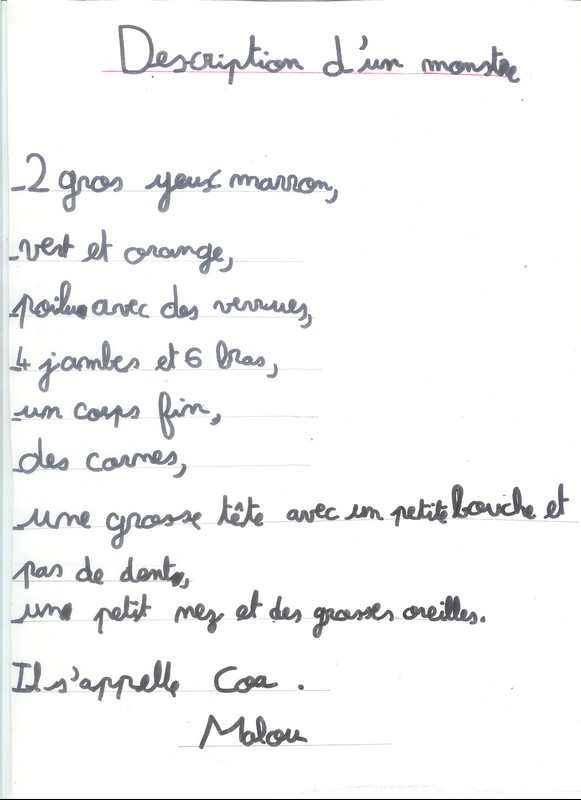 Description d'un monstre
-2 gros yeux marron,
-vert et orange,
poilu avec des verrues,
4 jambes et 6 bras,
-un corps fin,
-des cornes,
-une grosse tête avec un petite bouche et
pas de dents,
-un petit nez et des grosses oreilles.
Il s'appelle Coa.
Malou